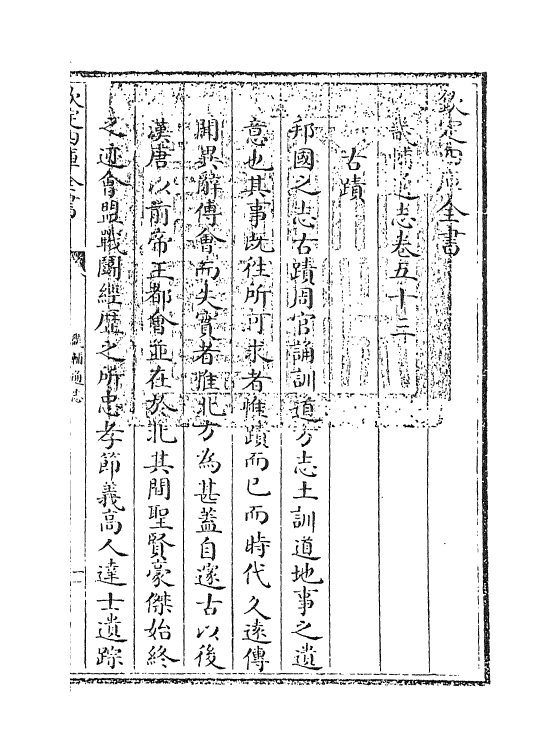 欽定四庫全書
畿輔通志卷五十三
古蹟
邦國之志古蹟周官誦訓道方志土訓道地事之遺
意也其事既往所可求者惟蹟而已而時代久遠傳
聞異辭傅會而失實者惟北方為甚蓋自邃古以後
漢唐以前帝王都會並在於北其間聖賢豪傑始終
之迹會盟戰鬭經歴之所忠孝節義高人達士遺踪
欽定四庫全書
畿輔通志
一